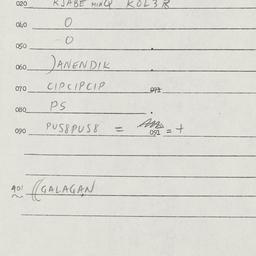 020 KJABE MINQ KOL3R
040 O
050 O
060 )ANENDIK
070 CIPCIPCIP 073
080 PS
090 PUS8PUS8 = 091 = +
901 ((GALAGAN